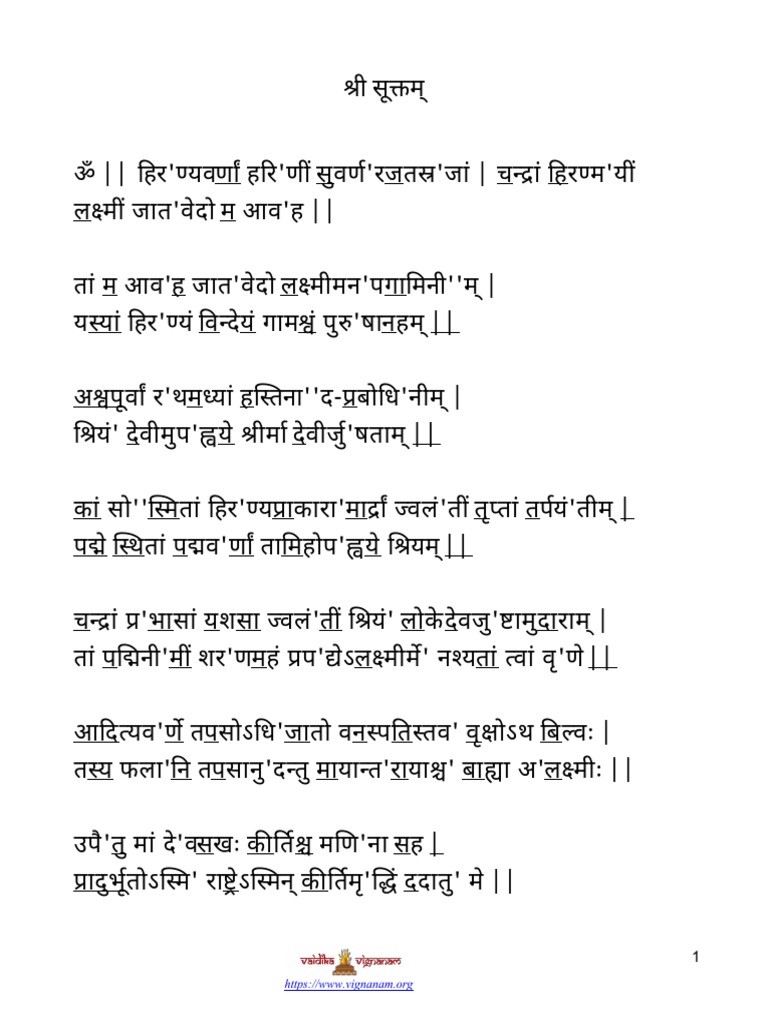 श्री सूक्तम्
ॐ || हिर'ण्यवर्णां हरि'णीं सुवर्ण'रजतस्र'जां | चन्द्रां हिरण्म'यीं
लक्ष्मीं जात'वेदो म आव'ह ||
तां म आव'ह जात'वेदो लक्ष्मीमन'पगामिनी''म् |
यस्यां हिर'ण्यं विन्देयं गामश्वं पुरु'षानहम् ||
अश्वपूर्वां र'थमध्यां हस्तिना''द-प्रबोधि'नीम् |
श्रियं' देवीमुप'ह्वये श्रीर्मा देवीर्जु'षताम् ||
कां सो''स्मितां हिर'ण्यप्राकारा'मार्द्रां ज्वलं'तीं तृप्तां तर्पयं'तीम् |
पद्मे स्थितां पद्मव'र्णां तामिहोप'ह्वये श्रियम् ||
चन्द्रां प्र'भासां यशसा ज्वलं'तीं श्रियं' लोकेदेवजु'ष्टामुदाराम् |
तां पद्मिनी'मीं शर'णमहं प्रप'द्येऽलक्ष्मीर्मे' नश्यतां त्वां वृ'णे ||
आदित्यव'र्णे तपसोऽधि'जातो वनस्पतिस्तव' वृक्षोऽथ बिल्वः |
तस्य फला'नि तपसानु'दन्तु मायान्त'रायाश्च' बाह्या अ'लक्ष्मीः ||
उपै'तु मां दे'वसखः कीर्तिश्च मणि'ना सह |
प्रादुर्भूतोऽस्मि' राष्ट्रेऽस्मिन् कीर्तिमृ'द्धिं ददातु' मे ||
vaidika vignanam
https://www.vignanam.org
1